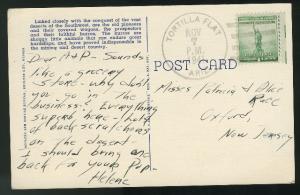 Linked closely with the conquest of the vast
deserts of the Southwest, are the old pioneers
and their covered wagons, the prospectors
and their faithful burros. The burros are
shaggy little animals that can endure great
hardships, and have proved indispensible in
the mining and desert country.
TORTILLA FLAT
NOV
P.M.
ARIZ.
POST CARD
Dear A & P - Sounds
like a grocery
store - why don't
you go in the
business? Everything
superb here - lots
of back scratchers
on the desert
I should bring one
back for your Pop -
Helene
Misses Patricia & Alice
Race
Oxford,
New Jersey